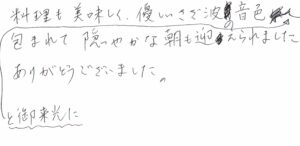 料理も美味しく、優しいさざ波の音色
包まれて 隠やかな朝も迎えられました
ありがとうございました。
と御来光に